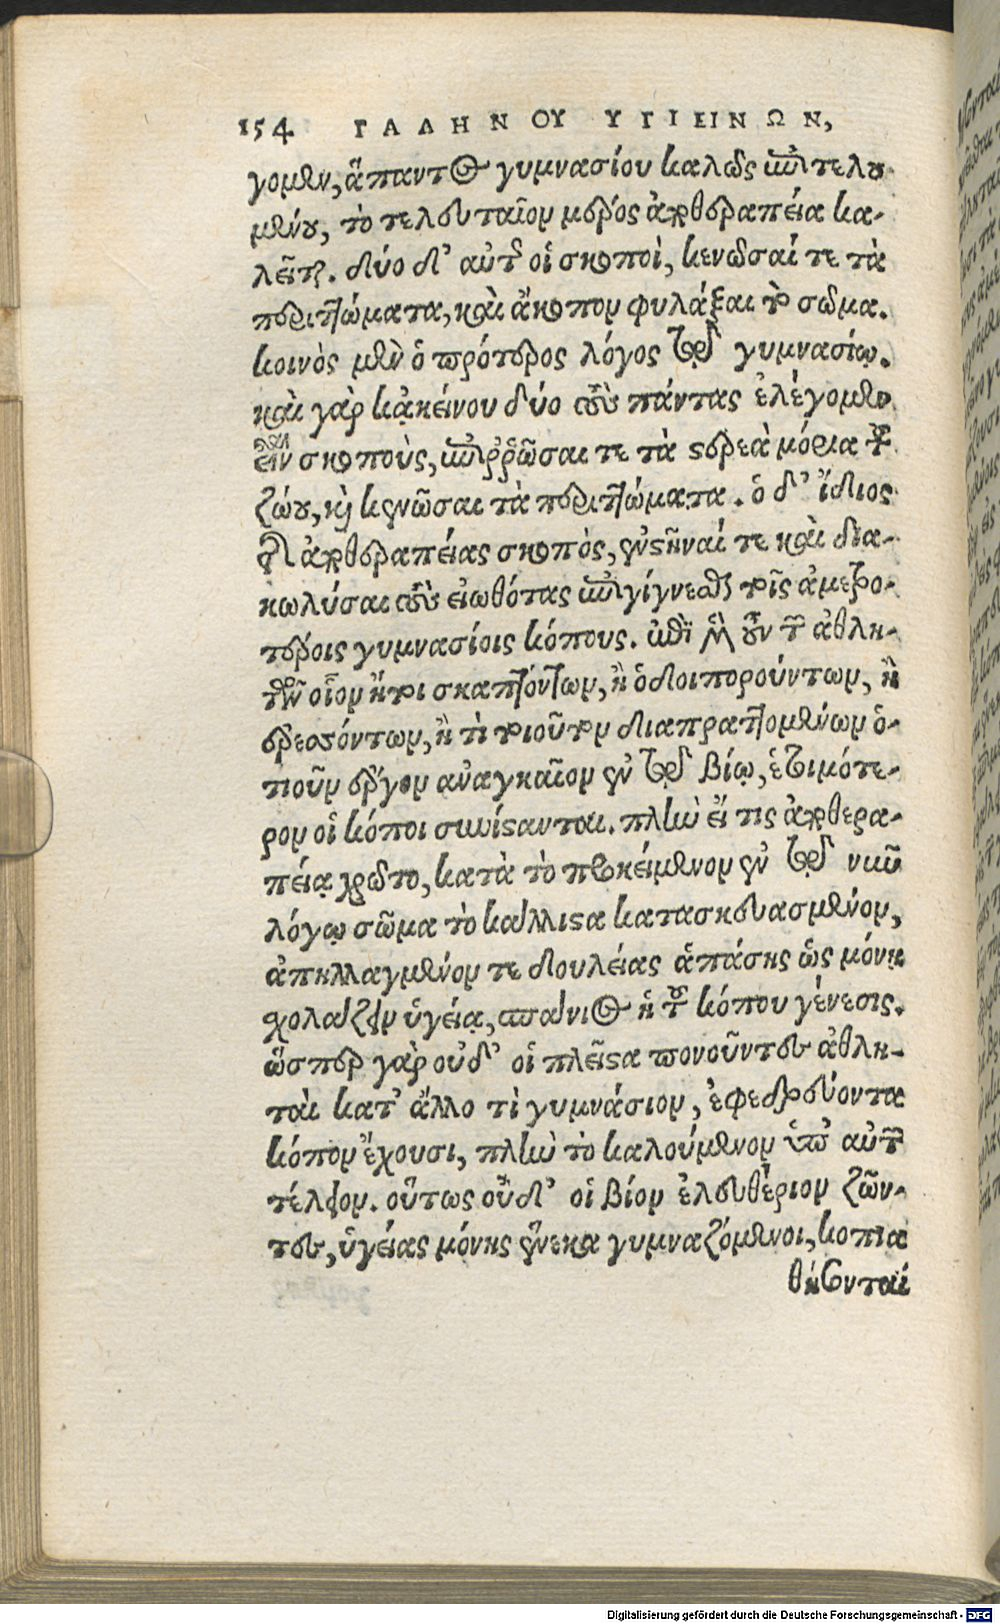 154 ΓΑΛΗΝΟΥ ΥΓΙΕΙΝΩΝ,
γομεν, ἅπαντος γυμνασίου καλῶς ἐπιτελου-
μένου, τὸ τελευταῖον μέρος ἀποθεραπεία κα-
λεῖται. δύο δ' αὐτῆς οἱ σκοποὶ, κενῶσαί τε τὰ
περιττώματα, καὶ ἄκοπον φυλάξαι τὸ σῶμα.
κοινὸς μὲν ὁ πρότερος λόγος τῷ γυμνασίῳ.
καὶ γὰρ κᾀκείνου δύο τοὺς πάντας ἐλέγομεν
εἶναι σκοποὺς, ἐπιῤῥῶσαι τε τὰ στερεὰ μόρια τοῦ
ζώου, καὶ κενῶσαι τὰ περιττώματα. ὁ δ' ἴδιος
τῆς ἀποθεραπείας σκοπὸς, ἐνστῆναί τε καὶ δια-
κωλύσαι τοὺς εἰωθότας ἐπιγίγνεσθαι τοῖς ἀμετρο-
τέροις γυμνασίοις κόπους. ἐπὶ μὲν οὖν τῶν ἀθλη-
τῶν οἷον ἤτοι σκαπτόντων, ἢ ὁδοιπορούντων, ἢ
ἐρεσσόντων, ἢ τὶ τοιοῦτον διαπραττομένων ὁ-
τιοῦν ἔργον ἀναγκαῖον ἐν τῷ βίῳ, ἑτοιμότε-
ρον οἱ κόποι συνίστανται. πλὴν εἴ τις ἀποθερα-
πείᾳ χρῷτο, κατὰ τὸ προκείμενον ἐν τῷ νῦν
λόγῳ σῶμα τὸ κάλλιστα κατασκευασμένον,
ἀπηλλαγμένον τε δουλείας ἁπάσης ὡς μόνῃ
σχολάζειν ὑγείᾳ, σπάνιος ἡ τοῦ κόπου γένεσις.
ὥσπερ γὰρ οὐδ' οἱ πλεῖστα πονοῦντες ἀθλη-
ταὶ κατ' ἄλλο τὶ γυμνάσιον, ἐφεδρεύοντα
κόπον ἔχουσι, πλὴν τὸ καλούμενον ὑπ' αὐτῶν
τέλειον. οὕτως οὐδ' οἱ βίον ἐλευθέριον ζῶν-
τες, ὑγείας μόνης ἕνεκα γυμναζόμενοι, κοπια
θήσονταί
Digitalisierung gefördert durch die Deutsche Forschungsgemeinschaft - DFG